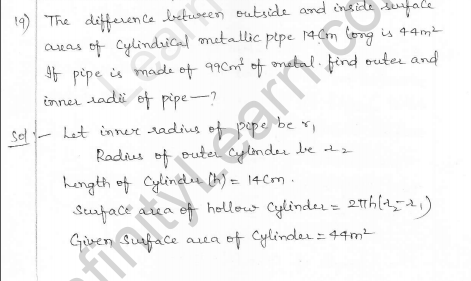 19) The difference between outside and inside surface
areas of Cylindrical metallic pipe 14Cm long is 44m²
If pipe is made of 99Cm³ of metal. find outer and
inner radii of pipe —?
Sol :- Let inner radius of pipe be r₁
Radius of outer Cylinder be r₂
Length of Cylinder (h) = 14Cm.
Surface area of hollow Cylinder = 2πh(r₂-r₁)
Given Surface area of Cylinder = 44m²
InfinityLearn.com